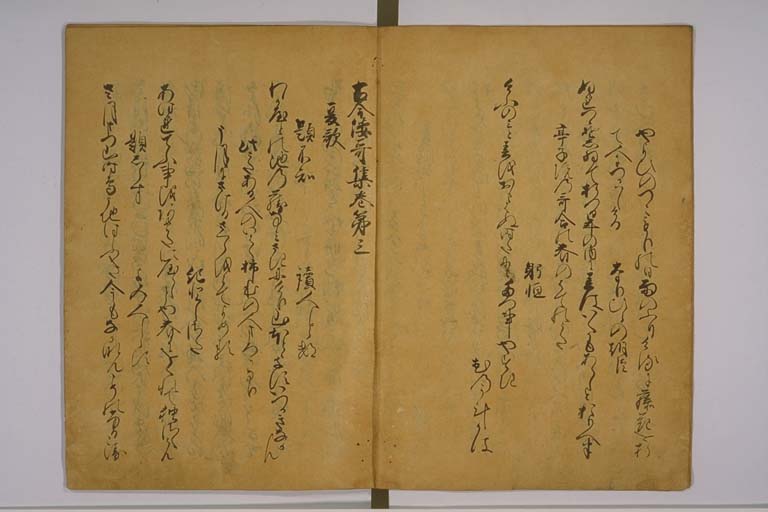 やよひのつこもりの日雨のふりけるに藤花を折
て人につかはしける　なりひらの朝臣
ぬれつゝそしゐて折つる年の内に春はいくかもあらしとおもへは
亭子院の哥合に春のはてのうた
躬恒
けふのみと春をおもはぬ時たにもたつ事やすき
花のかけかは
古今倭哥集巻第三
夏歌
題不知　讀人しらす
わか屋との池の藤なみさきにけり山ほとゝきすいつかきなかん
此うたある人のいはく柿本の人まろか也
う月にさけるさくらをみてよめる
紀としさた
あはれてふ事をあまたにやらしとや春にをくれて独さくらん
題しらす　よみ人しらす
さ月まつ山時鳥うちはふき今もなかなんこその